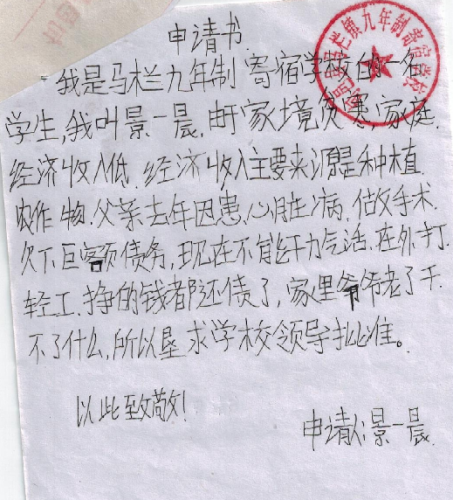 申请书
我是马栏九年制寄宿学校的一名
学生,我叫景一晨,由于家境贫寒,家庭
经济收入低.经济收入主要来源是种植
农作物.父亲去年因患心脏病,做手术
欠下巨额债务,现在不能干力气活.在外打
轻工.挣的钱都还债了,家里爷爷老了干
不了什么,所以恳求学校领导批准。
以此致敬!
申请人:景一晨
马栏镇九年制寄宿学校